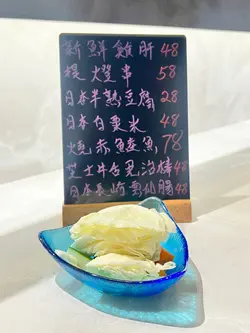 新鮮雞肝 48
提燈串 58
日本半熟豆腐 28
日本白粟米 48
燒赤鯥魚 78
芝士牛合兒治棒 48
日本長崎 仙腸 48